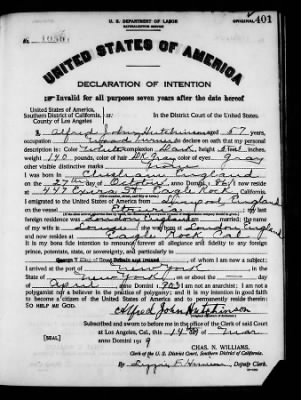 U. S. DEPARTMENT OF LABOR
NATURALIZATION SERVICE
ORIGINAL 401
No.
UNITED STATES OF AMERICA
DECLARATION OF INTENTION
Invalid for all purposes seven years after the date hereof
United States of America,
Southern District of California, ss: In the District Court of the United States.
County of Los Angeles
I, Alfred John Hutchinson, aged 57 years,
occupation, do declare on oath that my personal
description is: Color White, complexion Dark, height 5 feet inches,
weight 140 pounds, color of hair Dk Gray, color of eyes gray
other visible distinctive marks
I was born in England
on the 27th day of October, anno Domini 1861; I now reside
at Eagle Rock, California.
I emigrated to the United States of America from Liverpool England
on the vessel; my last
foreign residence was London England; I am married; the name
of my wife is Louise; she was born at London England
and now resides at Eagle Rock Cal
It is my bona fide intention to renounce forever all allegiance and fidelity to any foreign
prince, potentate, state, or sovereignty, and particularly to
George V, of Great Britain and Ireland, of whom I am now a subject;
I arrived at the port of New York, in the
State of New York, on or about the day
of April, anno Domini; I am not an anarchist; I am not a
polygamist nor a believer in the practice of polygamy; and it is my intention in good faith
to become a citizen of the United States of America and to permanently reside therein:
SO HELP ME GOD.
Alfred John Hutchinson
Subscribed and sworn to before me in the office of the Clerk of said Court
at Los Angeles, Cal., this 14 day of
[SEAL] anno Domini 1919
CHAS. N. WILLIAMS,
Clerk of the U. S. District Court, Southern District of California.
By, Deputy Clerk.